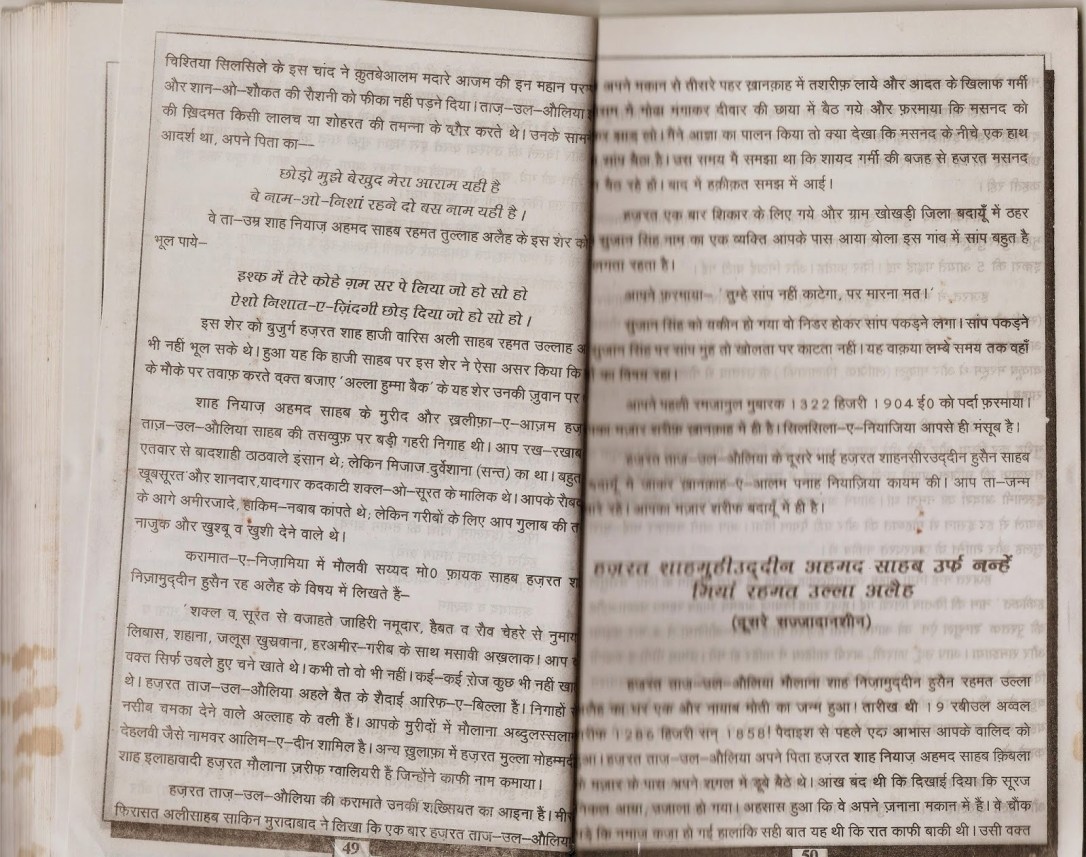 चिश्तिया सिलसिले के इस चांद ने क़ुतबेआलम मदारे आजम की इन महान पर
और शान-ओ-शौकत की रौशनी को फीका नहीं पड़ने दिया। ताज़-उल-औलिया
की ख़िदमत किसी लालच या शोहरत की तमन्ना के वग़ैर करते थे। उनके साम
आदर्श था, अपने पिता का—
छोड़ो मुझे बेखुद मेरा आराम यही है
बे नाम-ओ-निशां रहने दो बस नाम यही है।
वे ता-उम्र शाह नियाज़ अहमद साहब रहमत तुल्लाह अलैह के इस शेर को
भूल पाये—
इश्क में तेरे कोहे ग़म सर पे लिया जो हो सो हो
ऐशो निशात-ए-ज़िंदगी छोड़ दिया जो हो सो हो।
इस शेर को बुजुर्ग हज़रत शाह हाजी वारिस अली साहब रहमत उल्लाह अ
भी नहीं भूल सके थे। हुआ यह कि हाजी साहब पर इस शेर ने ऐसा असर किया कि
के मौके पर तवाफ़ करते वक़्त बजाए 'अल्ला हुम्मा बैक' के यह शेर उनकी ज़ुवान पर
शाह नियाज़ अहमद साहब के मुरीद और ख़लीफ़ा-ए-आज़म हज़
ताज़-उल-औलिया साहब की तसव्वुफ़ पर बड़ी गहरी निगाह थी। आप रख-रखाब
एतवार से बादशाही ठाठवाले इंसान थे; लेकिन मिजाज दुर्वेशाना (सन्त) का था। बहुत
खूबसूरत और शानदार,यादगार कदकाटी शक्ल-ओ-सूरत के मालिक थे। आपके रौबद
के आगे अमीरजादे, हाकिम-नबाब कांपते थे; लेकिन गरीबों के लिए आप गुलाब की त
नाजुक और खुश्बू व खुशी देने वाले थे।
करामात-ए-निज़ामिया में मौलवी सय्यद मो0 फ़ायक साहब हज़रत श
निज़ामुद्दीन हुसैन रह अलैह के विषय में लिखते हैं-
'शक्ल व सूरत से वजाहते जाहिरी नमूदार, हैबत व रौव चेहरे से नुमाय
लिबास, शहाना, जलूस खुस्रवाना, हरअमीर-गरीब के साथ मसावी अख़लाक। आप
वक्त सिर्फ उबले हुए चने खाते थे। कभी तो वो भी नहीं। कई-कई रोज कुछ भी नहीं खा
थे। हज़रत ताज-उल-औलिया अहले बैत के शैदाई आरिफ-ए-बिल्ला हैं। निगाहों
नसीब चमका देने वाले अल्लाह के वली हैं। आपके मुरीदों में मौलाना अब्दुलस्सला
देहलवी जैसे नामवर आलिम-ए-दीन शामिल है। अन्य खुलाफ़ा में हज़रत मुल्ला मोहम्मदी
शाह इलाहावादी हज़रत मौलाना ज़रीफ ग्वालियरी हैं जिन्होंने काफी नाम कमाया।
हज़रत ताज़-उल-औलिया की करामाते उनकी शख्सियत का आइना हैं। मी
फिरासत अलीसाहब साकिन मुरादाबाद ने लिखा कि एक बार हज़रत ताज-उल-औलिया
49
अपने मकान से तीसरे पहर ख़ानक़ाह में तशरीफ़ लाये और आदत के खिलाफ गर्मी
मंगाकर दीवार की छाया में बैठ गये और फ़रमाया कि मसनद को
लो। मैंने आज्ञा का पालन किया तो क्या देखा कि मसनद के नीचे एक हाथ
सांप बैठा है। उस समय मै समझा था कि शायद गर्मी की बजह से हज़रत मसनद
बैठ रहे हो। बाद में हक़ीक़त समझ में आई।
हज़रत एक बार शिकार के लिए गये और ग्राम खोखड़ी ज़िला बदायूँ में ठहर
सुजान सिंह नाम का एक व्यक्ति आपके पास आया बोला इस गांव में सांप बहुत है
लगता रहता है।
आपने फ़रमाया- 'तुम्हे सांप नहीं काटेगा, पर मारना मत।'
सुजान सिंह को यकीन हो गया वो निडर होकर सांप पकड़ने लगा। सांप पकड़ने
सुजान सिंह पर सांप मुंह तो खोलता पर काटता नहीं। यह वाक़या लम्बे समय तक वहाँ
का विषय रहा।
आपने पहली रमजानुल मुबारक 1322 हिजरी 1904 ई0 को पर्दा फ़रमाया।
मज़ार शरीफ़ ख़ानक़ाह में ही है। सिलसिला-ए-नियाजिया आपसे ही मंसूब है।
हज़रत ताज-उल-औलिया के दूसरे भाई हजरत शाहनसीरउद्दीन हुसैन साहब
बदायूँ में जाकर ख़ानक़ाह-ए-आलम पनाह नियाज़िया कायम की। आप ता-जन्म
रहे। आपका मज़ार शरीफ बदायूँ में ही है।
हज़रत शाहमुहीउद्दीन अहमद साहब उर्फ नन्हें
मियां रहमत उल्ला अलैह
(दूसरे सज्जादानशीन)
हज़रत ताज-उल-औलिया मौलाना शाह निज़ामुद्दीन हुसैन रहमत उल्ला
का घर एक और नायाब मोती का जन्म हुआ। तारीख थी 19 रबीउल अव्वल
1286 हिजरी सन् 1858! पैदाइश से पहले एक आभास आपके वालिद को
हज़रत ताज-उल-औलिया अपने पिता हज़रत शाह नियाज़ अहमद साहब क़िबला
मज़ार के पास अपने शगल में डूबे बैठे थे। आंख बंद थी कि दिखाई दिया कि सूरज
आया, उजाला हो गया। अहसास हुआ कि वे अपने ज़नाना मकान में हैं। वे चौंक
कि नमाज़ कज़ा हो गई हालांकि सही बात यह थी कि रात काफी बाकी थी। उसी वक्त
50